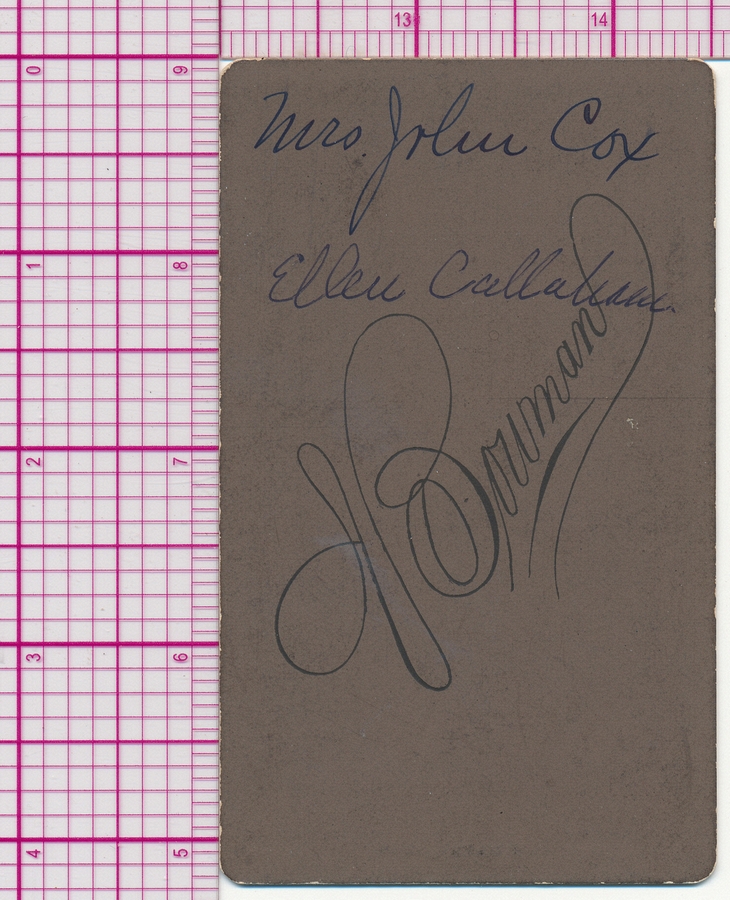 13 14
0 9
Mrs. John Cox
1 8
Ellen Callahan.
Bowman
2 7
3 6
4 5